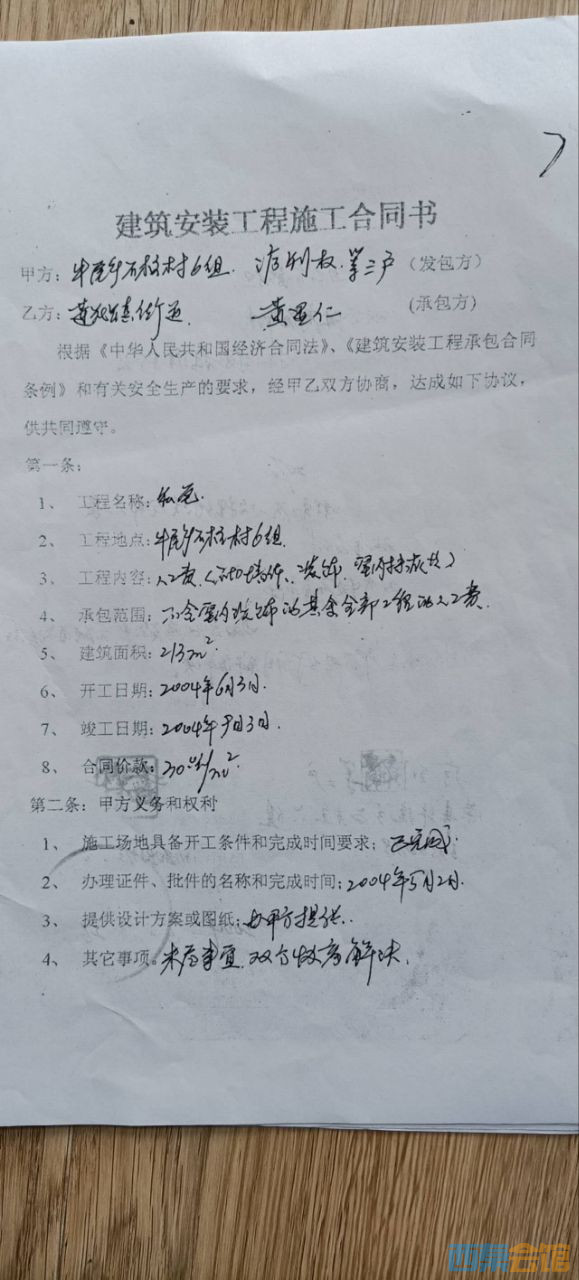 建筑安装工程施工合同书
甲方：牛尾乡石柱村6组. 权. 等三户（发包方）
乙方：黄 仁（承包方）
根据《中华人民共和国经济合同法》、《建筑安装工程承包合同
条例》和有关安全生产的要求，经甲乙双方协商，达成如下协议，
供共同遵守。
第一条：
1、 工程名称：私宅.
2、 工程地点：牛尾乡石柱村6组.
3、 工程内容：人工费（ 装饰. 室内 ）
4、 承包范围：不含室内装饰的其余全部工程的人工费.
5、 建筑面积：213m².
6、 开工日期：2004年6月3日.
7、 竣工日期：2004年9月3日.
8、 合同价款：/m²
第二条：甲方义务和权利
1、 施工场地具备开工条件和完成时间要求；已完成.
2、 办理证件、批件的名称和完成时间：2004年5月2日.
3、 提供设计方案或图纸：由甲方提供.
4、 其它事项。未尽事宜. 双方协商解决.
西祠会馆